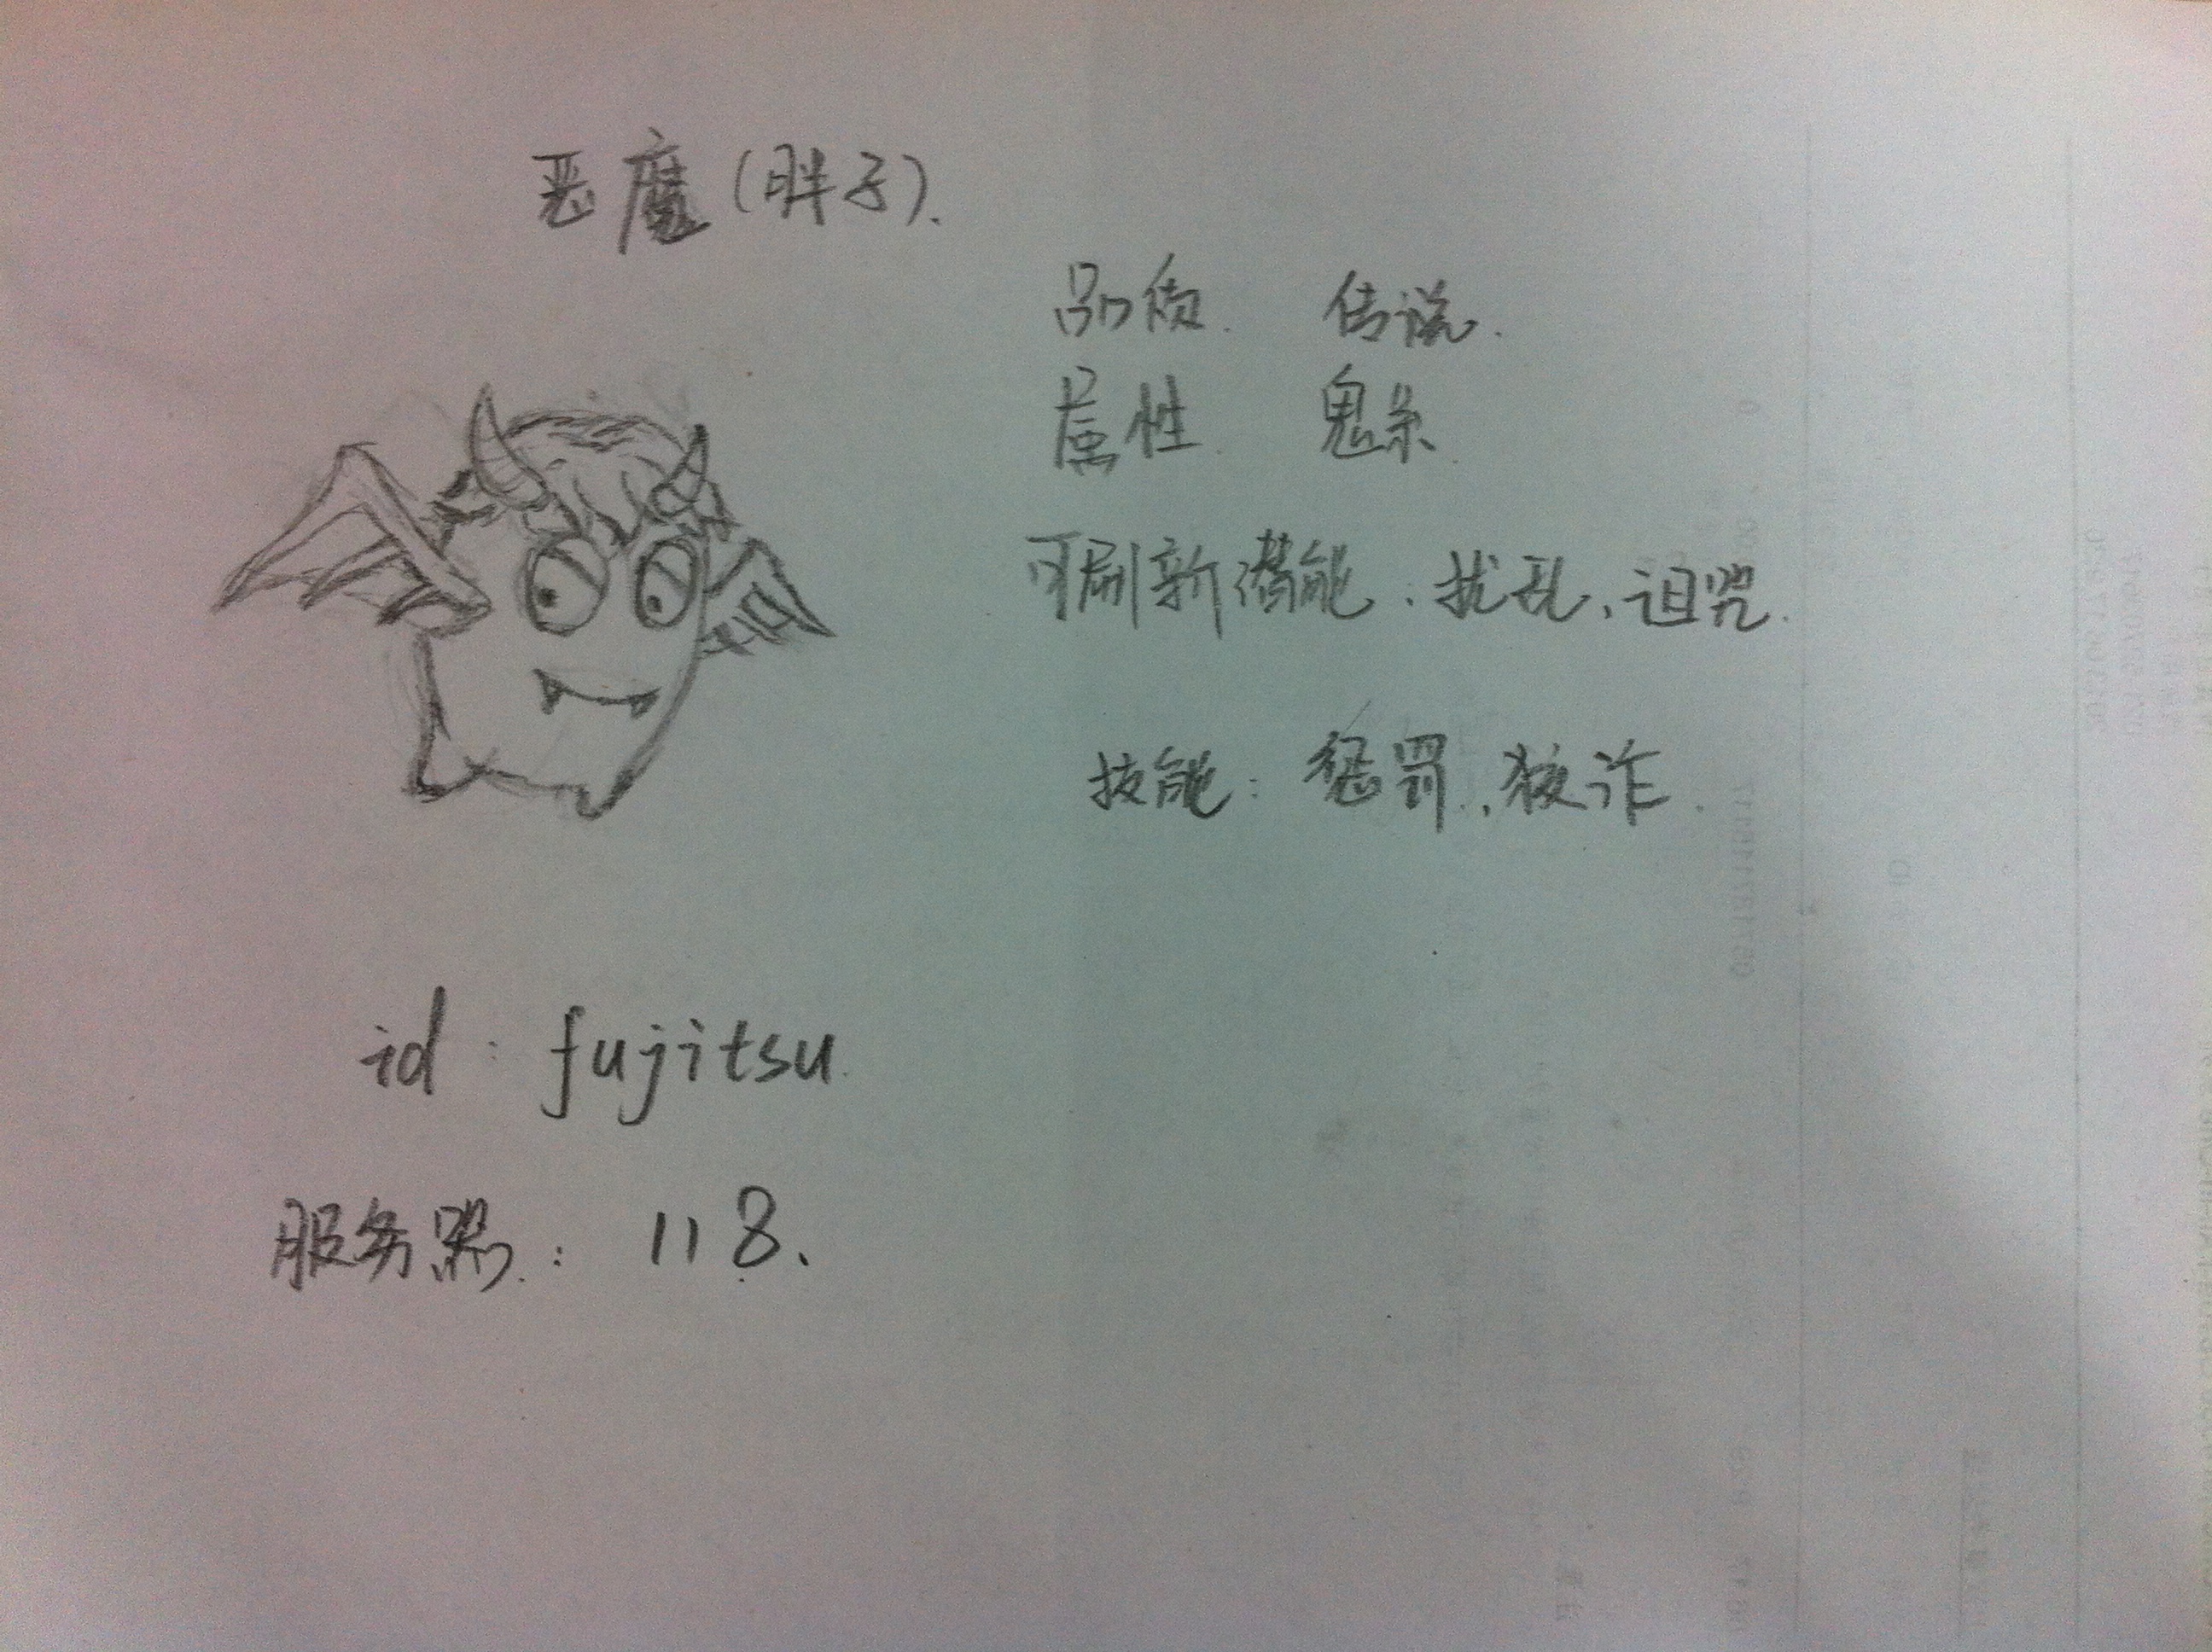 恶魔(胖子).
品质. 传说.
属性. 鬼杀.
可刷新潜能:扰乱、诅咒.
技能:惩罚、狡诈.
id:fujitsu.
服务器:118、